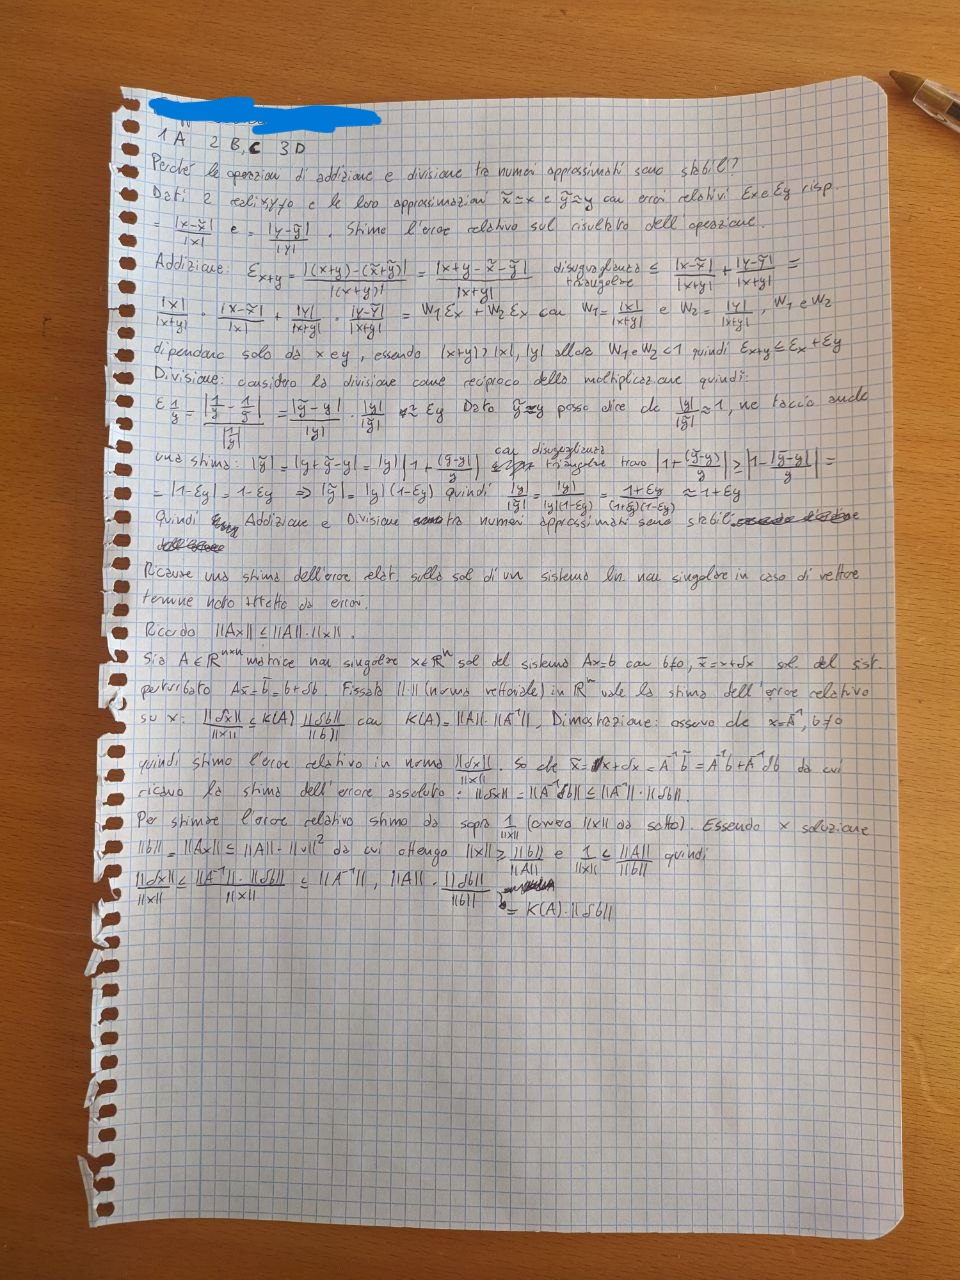 1 A 2 B, C 3 D
Perché le operazioni di addizione e divisione tra numeri approssimati sono stabili?
Dati 2 reali x,y≠0 e le loro approssimazioni x̃≈x e ỹ≈y con errori relativi Ex e Ey risp.
= |x-x̃|/|x| e = |y-ỹ|/|y| . Stimo l'errore relativo sul risultato dell'operazione.
Addizione: Ex+y = |(x+y)-(x̃+ỹ)|/|(x+y)| = |x+y-x̃-ỹ|/|x+y| disuguaglianza triangolare ≤ |x-x̃|/|x+y| + |y-ỹ|/|x+y| =
|x|/|x+y| · |x-x̃|/|x| + |y|/|x+y| · |y-ỹ|/|x+y| = W1 Ex + W2 Ex con W1 = |x|/|x+y| e W2 = |y|/|x+y|, W1 e W2
dipendono solo da x e y, essendo |x+y|>|x|,|y| allora W1 e W2 <1 quindi Ex+y ≤ Ex + Ey
Divisione: considero la divisione come reciproco della moltiplicazione quindi:
E 1/y = |1/y - 1/ỹ|/|1/y| = |ỹ-y|/|y| · |y|/|ỹ| ≈ Ey Dato ỹ≈y posso dire che |y|/|ỹ| ≈ 1, ne faccio anche
una stima: |ỹ| = |y+ỹ-y| = |y| |1+(ỹ-y)/y| con disuguaglianza triangolare trovo |1+(ỹ-y)/y| ≥ |1-|ỹ-y|/y| =
= |1-Ey| = 1-Ey ⇒ |ỹ| = |y|(1-Ey) quindi |y|/|ỹ| = |y|/|y|(1-Ey) = 1+Ey/(1+Ey)(1-Ey) ≈ 1+Ey
Quindi Addizione e Divisione tra numeri approssimati sono stabili
Ricavare una stima dell'errore relat. sulla sol di un sistema lin. non singolare in caso di vettore
termine noto affetto da errori.
Ricordo ||Ax|| ≤ ||A||·||x||.
Sia A∈R^{n×n} matrice non singolare x∈R^n sol del sistema Ax=b con b≠0, x̃=x+δx sol. del sist.
perturbato Ax̃=b̃=b+δb. Fissata ||·|| (norma vettoriale) in R^n vale la stima dell'errore relativo
su x: ||δx||/||x|| ≤ K(A) ||δb||/||b|| con K(A)=||A||·||A^-1||, Dimostrazione: osservo che x=A^-1, b≠0
quindi stimo l'errore relativo in norma ||δx||/||x||. So che x̃ = x+δx = A^-1 b̃ = A^-1 b + A^-1 δb da cui
ricavo la stima dell'errore assoluto: ||δx|| = ||A^-1 δb|| ≤ ||A^-1||·||δb||.
Per stimare l'errore relativo stimo da sopra 1/||x|| (ovvero ||x|| da sotto). Essendo x soluzione
||b|| = ||Ax|| ≤ ||A||·||x||² da cui ottengo ||x|| ≥ ||b||/||A|| e 1/||x|| ≤ ||A||/||b|| quindi
||δx||/||x|| ≤ ||A^-1||·||δb||/||x|| ≤ ||A^-1||, ||A|| · ||δb||/||b||
= K(A)·||δb||